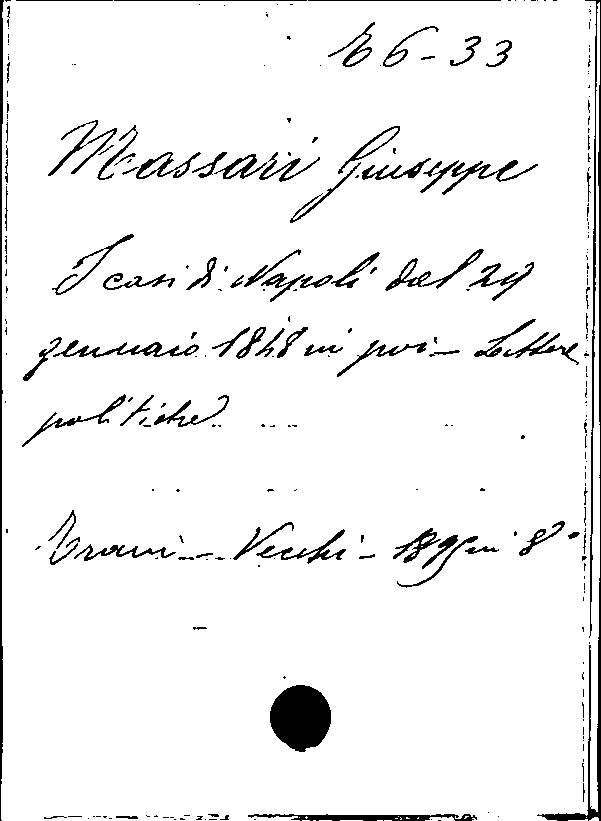 E6-33
Massari Giuseppe
I casi di Napoli dal 29
gennaio 1848 in poi - Lettere
politiche
Trani - Vecchi - 1895 in 8°